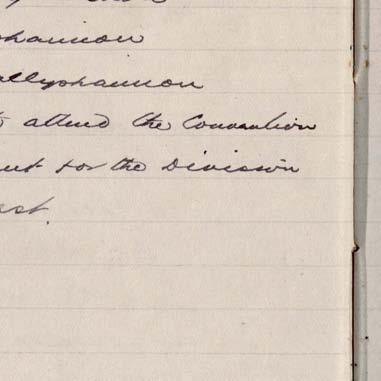 shannon
allyshannon
to attend the Convention
ent for the Division
ast.